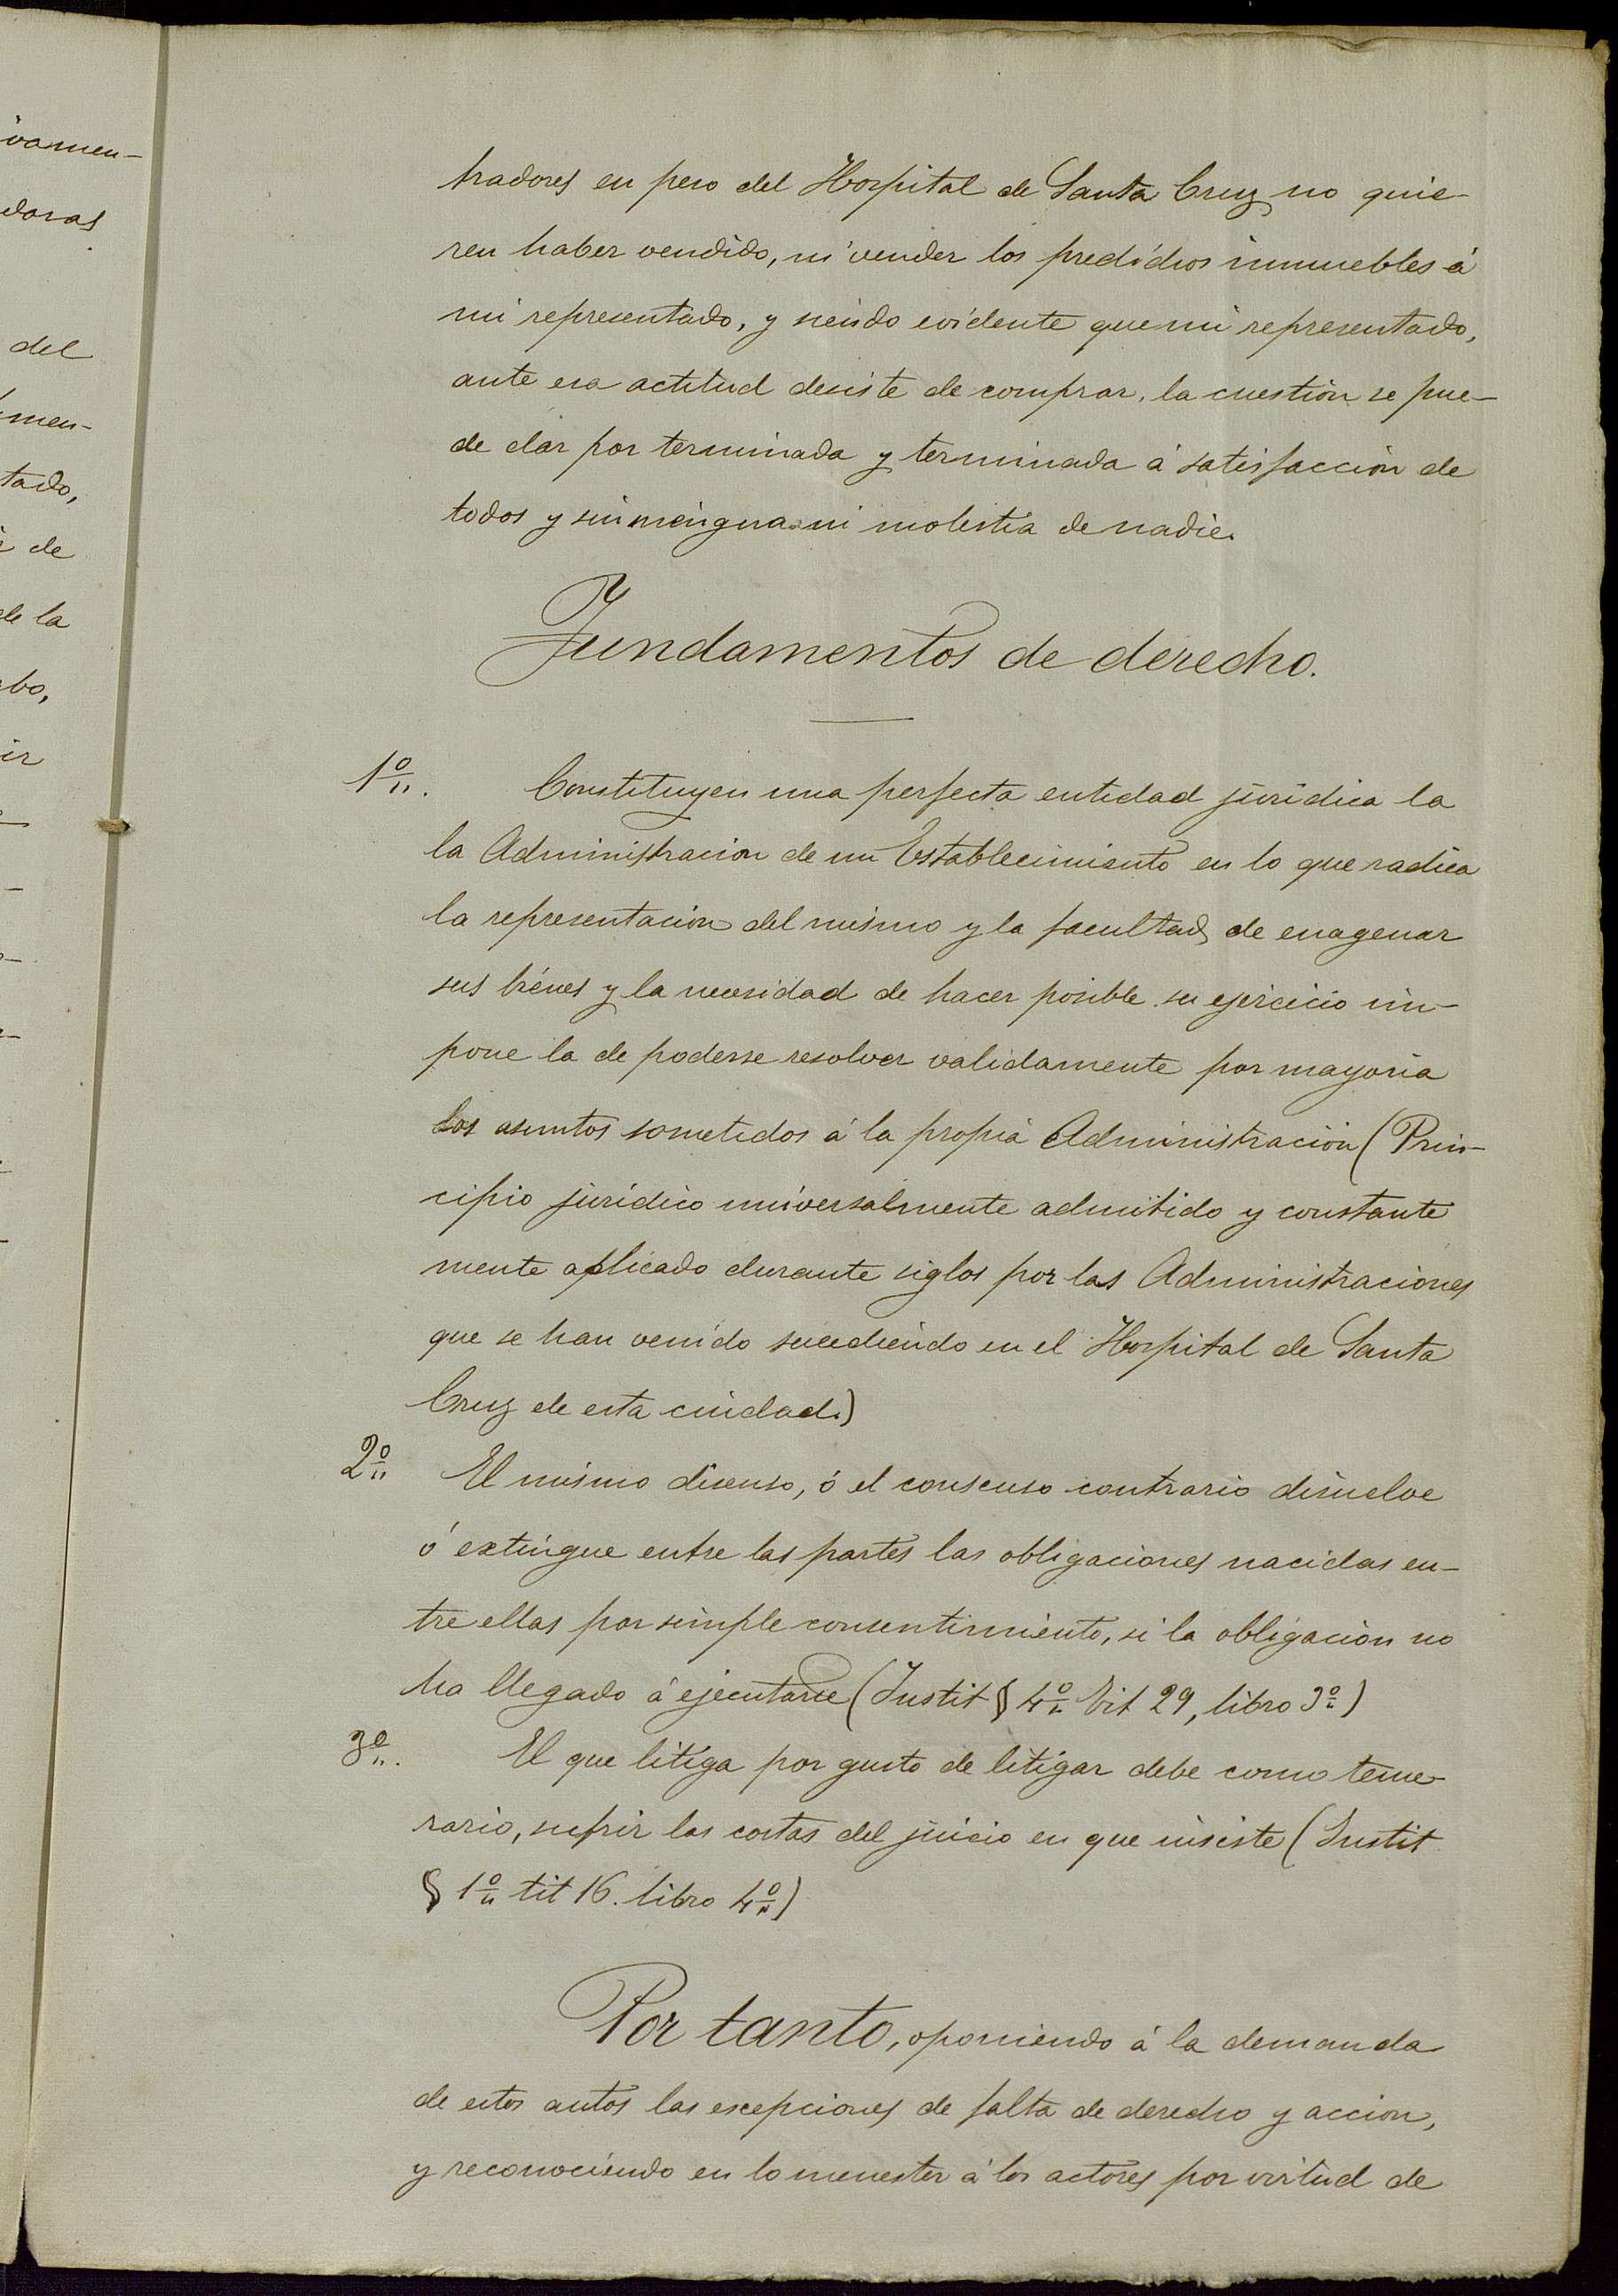 vamen-
doras
del
men-
tado,
de
de la
bo,
ir
tradores en peso del Hospital de Santa Cruz no quie-
ren haber vendido, ni vender los predichos inmuebles á
mi representado, y siendo evidente que mi representado,
ante esa actitud desiste de comprar, la cuestion se pue-
de dar por terminada y terminada á satisfacción de
todos y sin mengua ni molestia de nadie.
Fundamentos de derecho.
1º. Constituyen una perfecta entidad jurídica la
la Administracion de un Establecimiento en lo que radica
la representacion del mismo y la facultad de enagenar
sus bienes y la necesidad de hacer posible su ejercicio im-
pone la de poderse resolver validamente por mayoria
los asuntos sometidos á la propia Administración (Prin-
cipio jurídico universalmente admitido y constante
mente aplicado durante siglos por las Administraciones
que se han venido sucediendo en el Hospital de Santa
Cruz de esta ciudad.)
2º El mismo disenso, ó el consenso contrario disuelve
ó extingue entre las partes las obligaciones nacidas en-
tre ellas por simple consentimiento, si la obligación no
ha llegado á ejecutarse (Instit § 4º Tit 29, libro 3º)
3º. El que litiga por gusto de litigar debe como teme-
rario, sufrir las costas del juicio en que insiste (Instit
§ 1º tit 16. libro 4º)
Por tanto, oponiendo á la demanda
de estos autos las escepciones de falta de derecho y accion,
y reconociendo en lo menester á los actores por virtud de